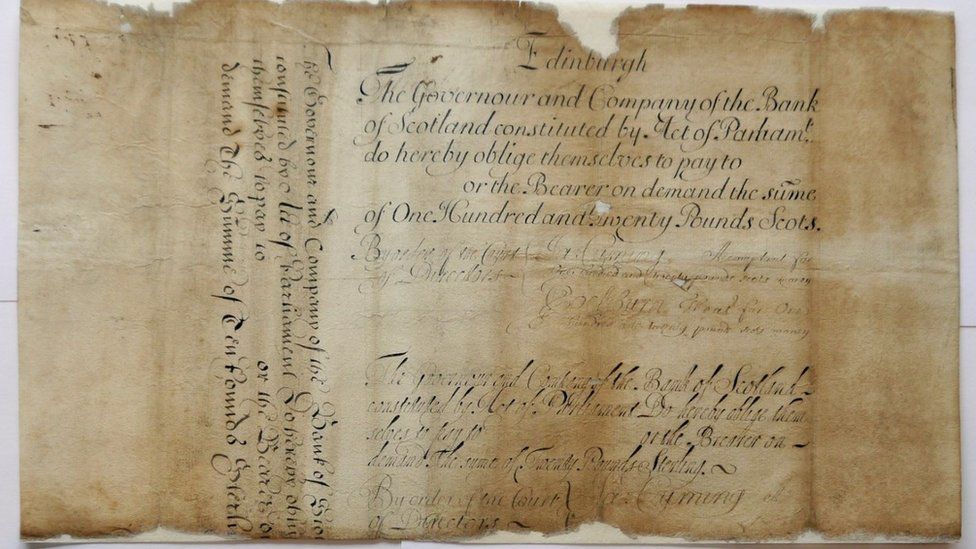 Edinburgh
The Governour and Company of the Bank
of Scotland constituted by Act of Parliamt.
do hereby oblige themselves to pay to
or the Bearer on demand the sume
of One Hundred and Twenty Pounds Scots.
By order of the Court
of Directors
Accomptant for
One hundred and twenty pounds scots money
for One
hundred and twenty pound scots money
The Governour and Company of the Bank of Scotland
constituted by Act of Parliament Do hereby oblige them
selves to pay to or the Bearer on
demand The sume of Twenty Pounds Sterling.
By order of the Court Ja: Cuming
of Directors
The Governour and Company of the Bank of Sco
constituted by Act of Parliament Do hereby oblig
themselves to pay to or the Bearer on
demand The Summe of Ten Pounds Sterlin